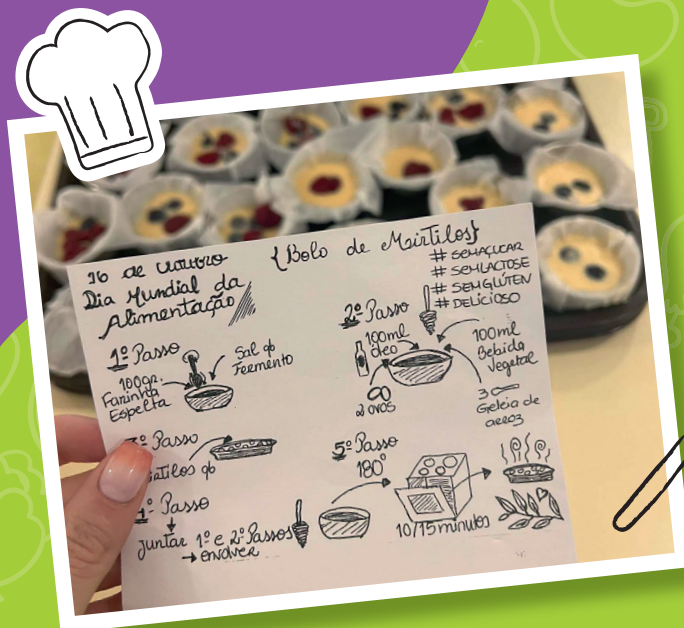 16 de Outubro
Dia Mundial da
Alimentação
{Bolo de Mirtilos}
# SEMAÇUCAR
# SEMLACTOSE
# SEMGLÚTEN
# DELICIOSO
1º Passo
100gr.
Farinha
Espelta
Sal qb
Fermento
2º Passo
100ml
óleo
2 ovos
100ml
Bebida
Vegetal
3
Geleia de
arroz
Passo
qb
Passo
juntar 1º e 2º Passos
→ envolver
5º Passo
180°
10/15 minutos